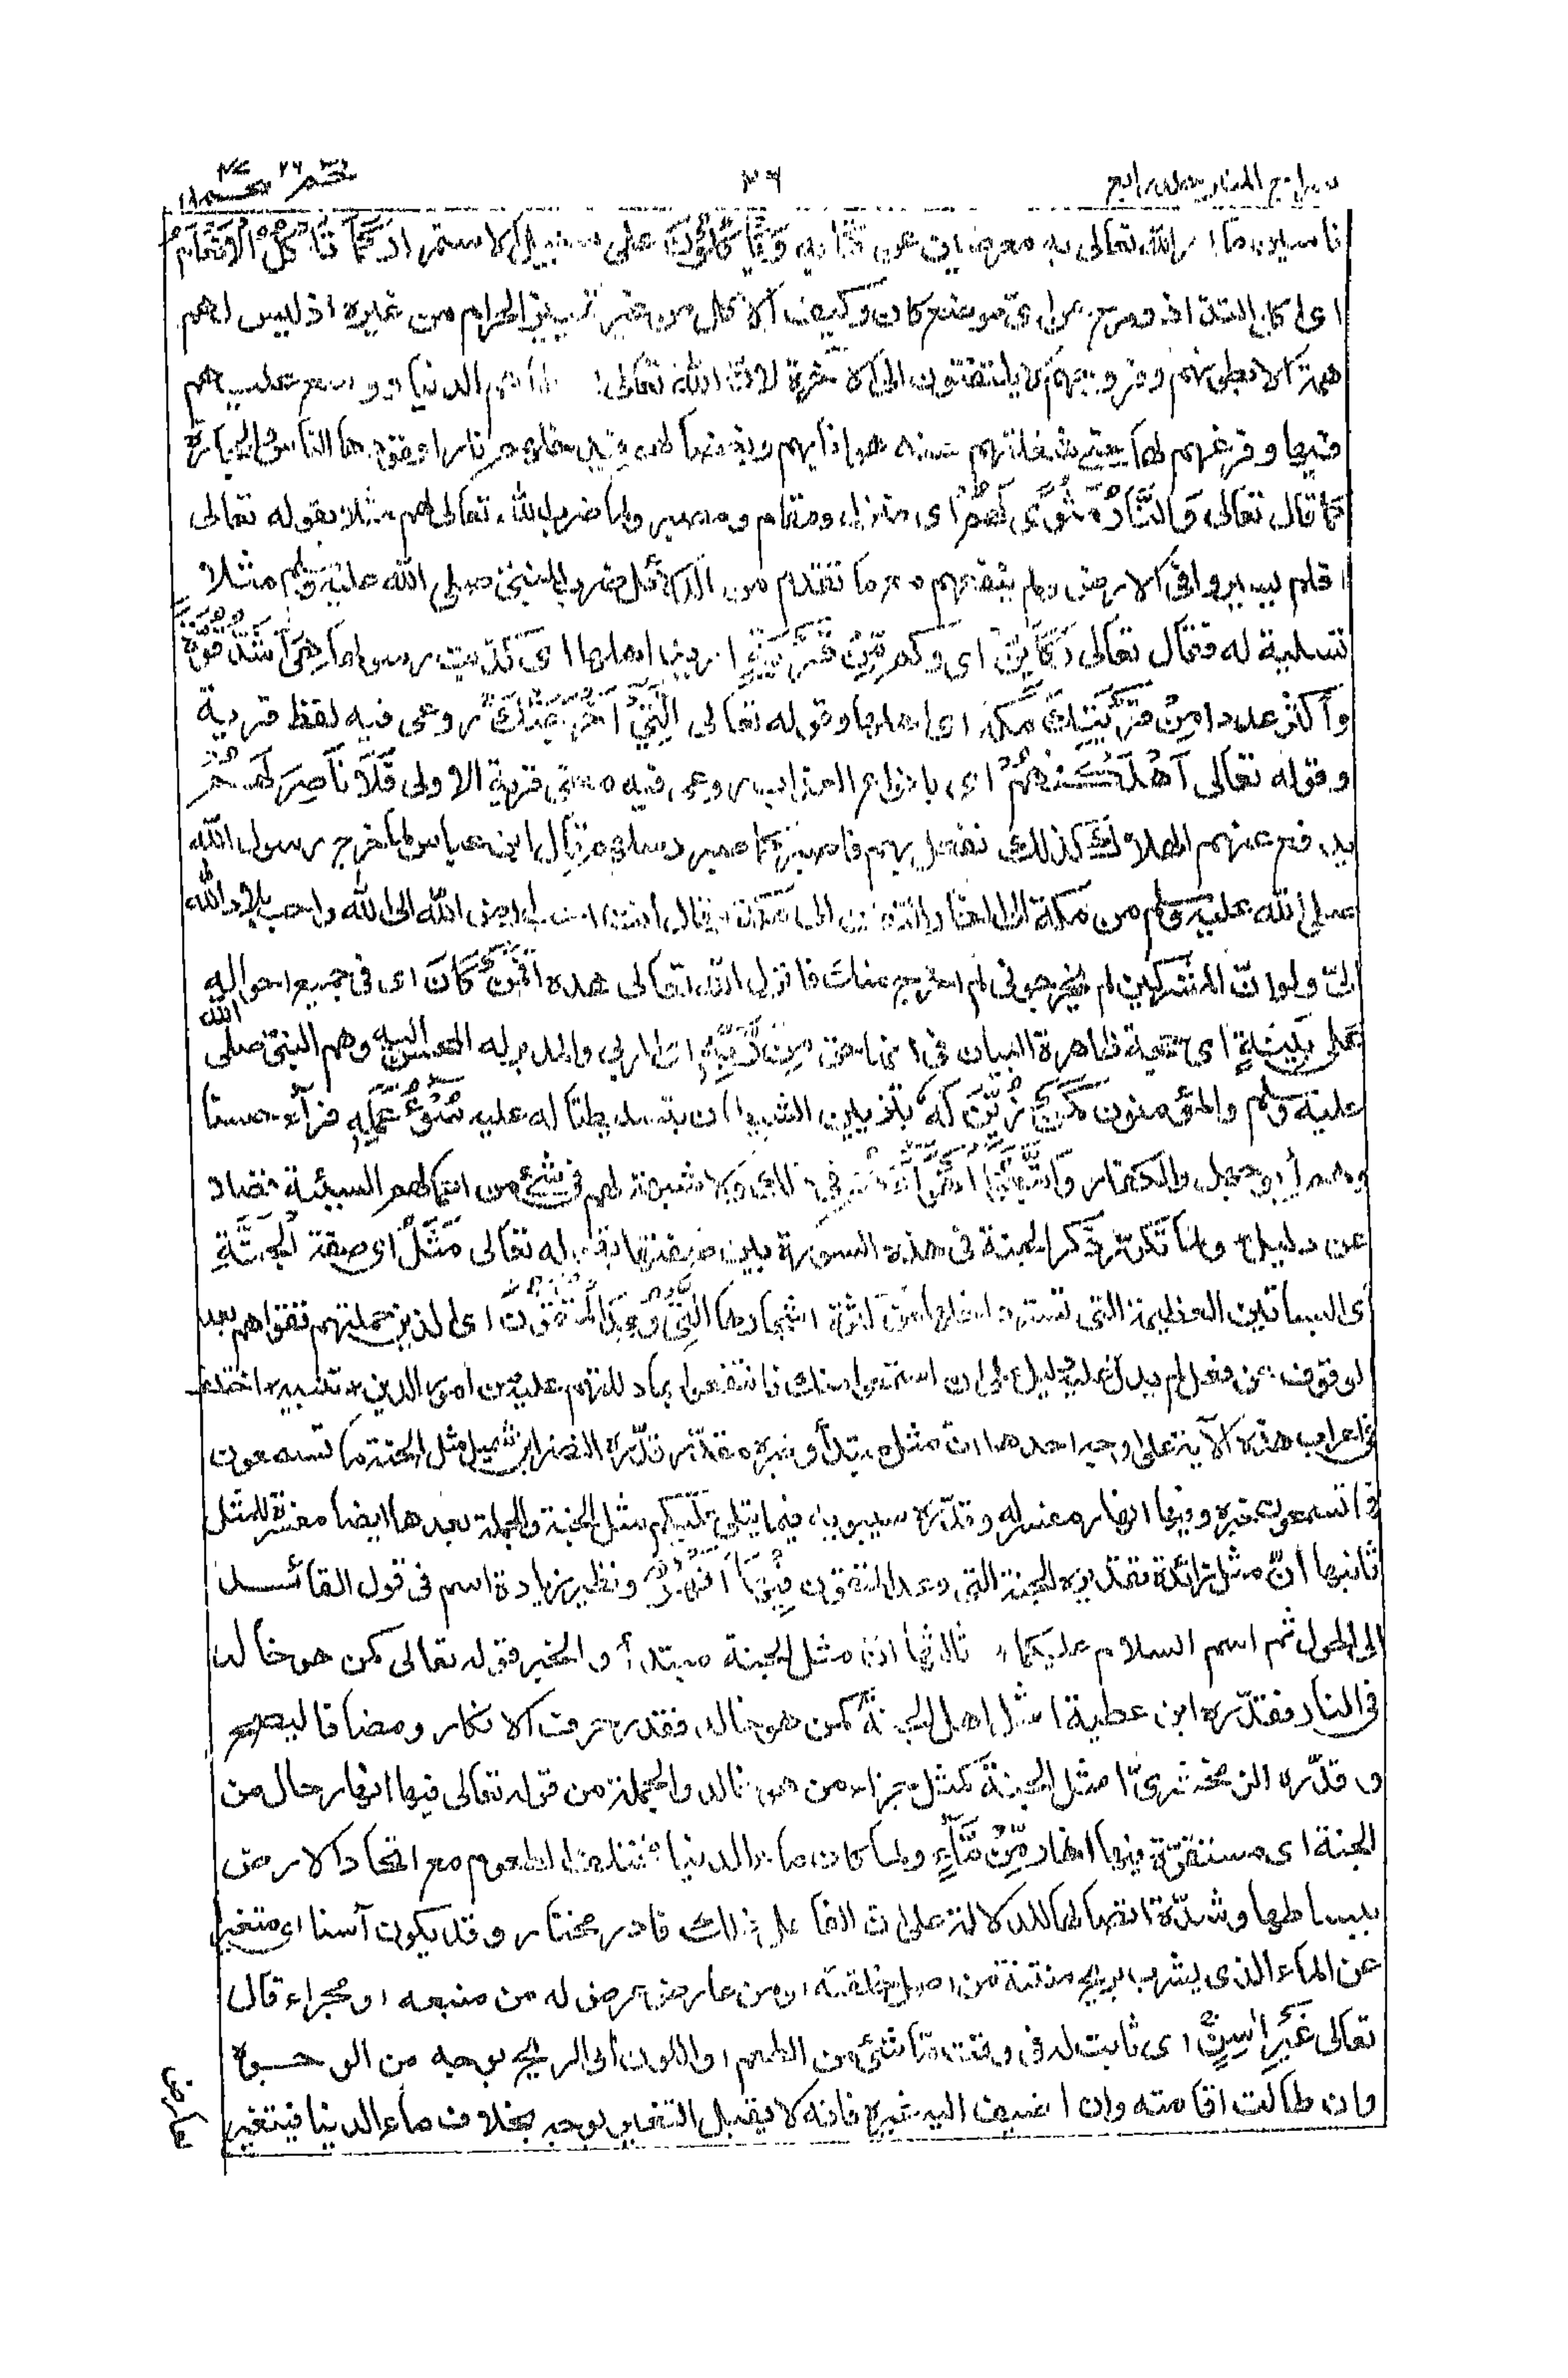 سراج المنير جلد رابع ٣٦ حٰم ٢٦ محمد ٤٧
ناسين ما امر الله تعالى به معرضين عن كتابه وَيَأْكُلُوْنَ على سبيل الاستمرار كَمَا تَأْكُلُ الْاَنْعَامُ
اى اكل التذاذ ومرح من اى موضع كان وكيف الاكل من غير تمييز الحرام من غيره اذ ليس لهم
همة الا بطونهم وفروجهم لا يلتفتون الى الاخرة لانّ الله تعالى اعطاهم الدنيا ووسع عليهم
فيها وفرغهم لها حتى شغلتهم عنه هوانا بهم وبغضا لهم فيدخلهم نارا وقودها الناس والحجارة
كما قال تعالى وَالنَّارُ مَثْوًى لَّهُمْ اى منزل ومقام ومصير ولما ضرب الله تعالى لهم مثلا بقوله تعالى
افلم يسيروا فى الارض ولم ينفعهم مع ما تقدم من الدلائل ضرب للنبىّ صلى الله عليه وسلم مثلا
تسلية له فقال تعالى وَكَاَيِّنْ اى وكم مِّنْ قَرْيَةٍ اريد اهلها اى كذبت رسولها هِىَ اَشَدُّ قُوَّةً
واكثر عددا مِّنْ قَرْيَتِكَ مكة اى اهلها وقوله تعالى الَّتِىْٓ اَخْرَجَتْكَ روعى فيه لفظ قرية
وقوله تعالى اَهْلَكْنٰهُمْ اى بانواع العذاب روعى فيه معنى قرية الاولى فَلَا نَاصِرَ لَهُمْ
يدفع عنهم الهلاك كذلك نفعل بهم فاصبر كما صبر رسلهم قال ابن عباس لما خرج رسول الله
صلى الله عليه وسلم من مكة الى الغار التفت الى مكة وقال انت احب بلاد الله الى الله واحب بلاد الله
الىّ ولو انّ المشركين لم يخرجونى لم اخرج منك فانزل الله تعالى هذه اَفَمَنْ كَانَ اى فى جميع احواله
عَلٰى بَيِّنَةٍ اى حجة ظاهرة البيان فى انها حق مِّنْ رَّبِّهٖ المربى والمدبر له المحسن اليه وهم النبىّ صلى الله
عليه وسلم والمؤمنون كَمَنْ زُيِّنَ لَهٗ بتزيين الشيطان بتسليطنا له عليه سُوْٓءُ عَمَلِهٖ فرآه حسنا
وهم ابو جهل والكفار وَاتَّبَعُوْٓا اَهْوَآءَهُمْ فى ذلك ولا شبهة لهم فى شئ من اعمالهم السيئة فضلا
عن دليل ولما تكرّر ذكر الجنة فى هذه السورة بين صفتها بقوله تعالى مَثَلُ اى صفة الْجَنَّةِ
اى البساتين العظيمة التى تستر داخلها من كثرة اشجارها الَّتِىْ وُعِدَ الْمُتَّقُوْنَ اى الذين حملتهم تقواهم بعد
الوقوف عن فعل لم يدل عليه دليل على ان استمعوا منك فانتفعوا بما دللتهم عليه من امور الدين تنبيه اختلف
فى اعراب هذه الآية على اوجه احدها ان مثل مبتدأ وخبره مقدّر قدّره النضر ابن شميل مثل الجنة ما تسمعون
فما تسمعون خبره وفيها انهار مفسر له وقدّره سيبويه فيما يتلى عليكم مثل الجنة والجملة بعدها ايضا مفسرة للمثل
ثانيها انّ مثل زائدة تقديره الجنة التى وعد المتقون فِيْهَآ اَنْهٰرٌ ونظير زيادة اسم فى قول القائل
الى الحول ثم اسم السلام عليكما، ثالثها ان مثل الجنة مبتدأ والخبر قوله تعالى كمن هو خالد
فى النار فقدّره ابن عطية امثل اهل الجنة كمن هو خالد فقدر حرف الانكار ومضافا ليصح
وقدّره الزمخشرىّ امثل الجنة كمثل جزاء من هو خالد والجملة من قوله تعالى فيها انهار حال من
الجنة اى مستقرّة فيها انهار مِّنْ مَّآءٍ ولما كان ماء الدنيا مختلف الطعوم مع اتحاد الارض
ببساطها وشدّة اتصالها للدلالة على ان الفاعل لذلك قادر مختار وقد يكون آسنا اى متغيرا
عن الماء الذى يشرب بريح منتنة من اصل خلقته او من عارض عرض له من منبعه او مجراه قال
تعالى غَيْرِ اٰسِنٍ اى ثابت له فى وقت ما شئ من الطعم او اللون او الريح بوجه من الوجوه
وان طالت اقامته وان اضيف اليه غيره فانه لا يقبل التغير بوجه بخلاف ماء الدنيا فيتغير